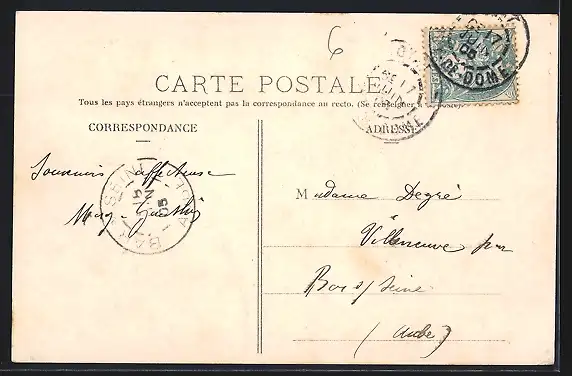 6
CARTE POSTALE
Tous les pays étrangers n'acceptent pas la correspondance au recto. (Se renseigner à
CORRESPONDANCE
ADRESSE
Souvenirs affectueux
Madame Degré
Villeneuve par
Bar s/ Seine
(Aube)
BAR SEINE
AUBE
05
17
DE-DOME